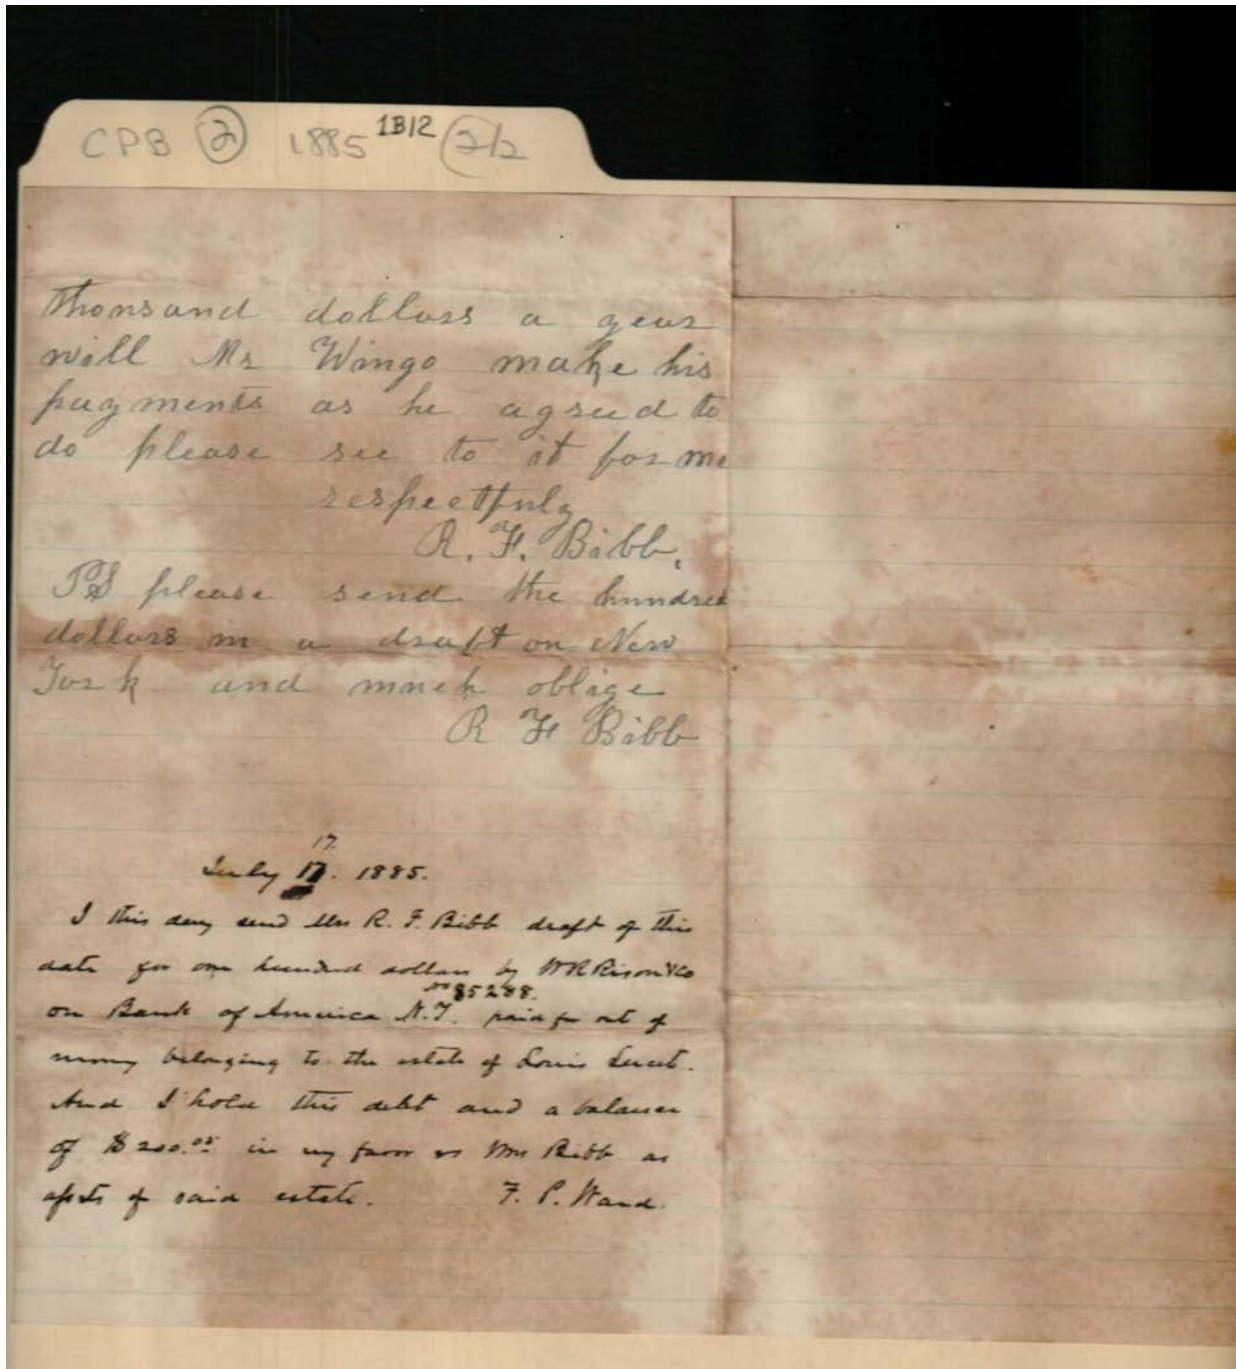 CPB 2 1885 1B12 2/2
thousand dollars a year
will Mr Wingo make his
payments as he agreed to
do please see to it for me
respectfuly
R. F. Bibb.
PS please send the hundred
dollars in a draft on New
York and much oblige
R F Bibb
17.
July 17. 1885.
I this day send Mrs R. F. Bibb draft of this
date for one hundred dollars by W R Rison & Co
no 85288.
on Bank of America N.Y. paid for out of
money belonging to the estate of Louis
And I hold this debt and a balance
of $200.00 in my favor vs Mrs Bibb as
assets of said estate. F. P. Ward.